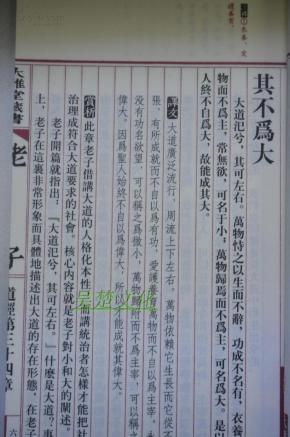 其不爲大
大道氾兮，其可左右。萬物恃之以生而不辭，功成不名有，衣養
物而不爲主，常無欲，可名于小；萬物歸焉而不爲主，可名爲大。是以
人終不自爲大，故能成其大。
譯文 大道廣泛流行，周流上下左右。萬物依賴它生長而它從不
張，有所成就而不自以爲有功，愛護養育萬物而不自以爲主宰，
没有功名欲望，可以稱之爲微小；萬物歸附而不爲主宰，可以稱之
偉大。因爲聖人始終不自以爲偉大，所以才能成就其偉大。
賞析 此章老子借講大道的人格化本性，而講統治者怎樣才能把社
治理成符合大道要求的社會，核心内容就是老子對小和大的闡述。
老子開篇就指出：“大道氾兮，其可左右。”什麽是大道？事
上，老子在這裏非常形象而具體地描述出大道的存在形態，在老子
大雅堂藏書
老
子
道經第三十四章
六
吴楚文化